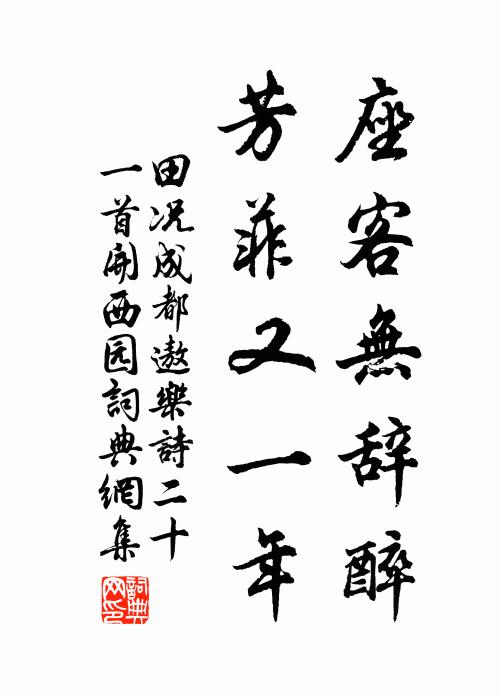 座客無辞醉
芳菲又一年
田况成都遨樂詩二十
一首開西园詞典網集
詞典网印